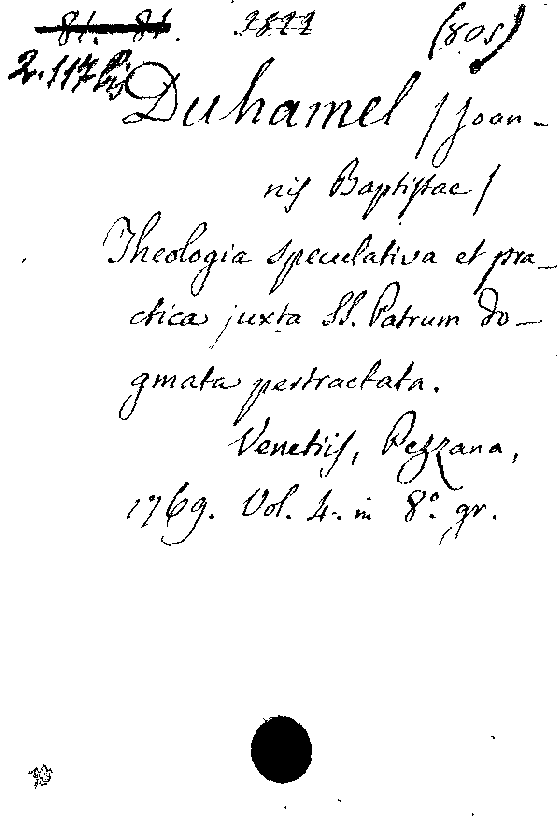 81. 81. (805)
2.117 bis
Duhamel / Joan-
nis Baptistae /
Theologia speculativa et pra-
ctica juxta SS. Patrum do-
gmata pertractata.
Venetiis, Pezzana,
1769. Vol. 4. in 8º. gr.